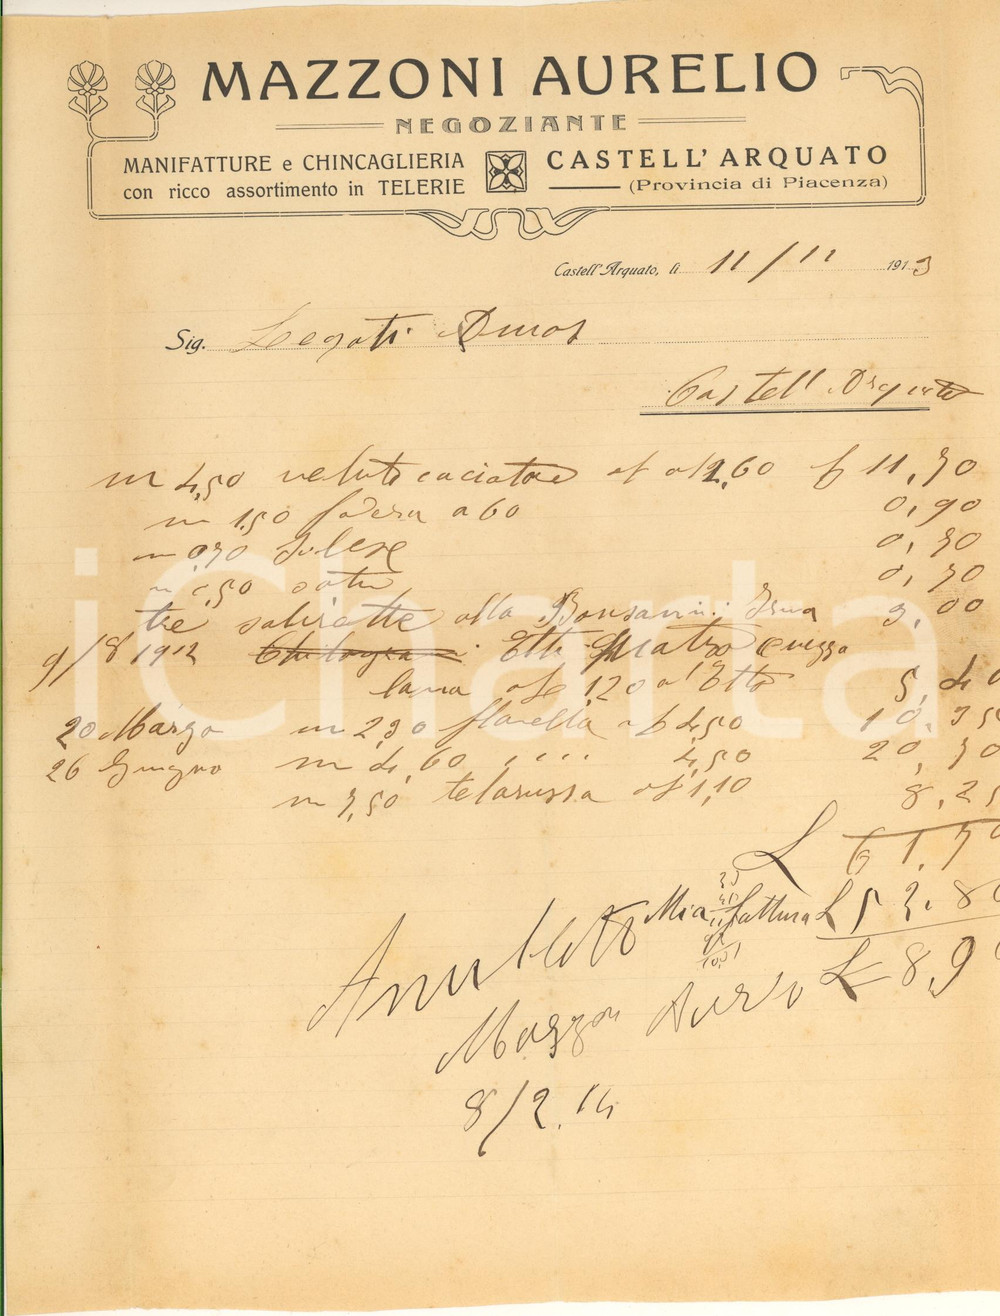 MAZZONI AURELIO
NEGOZIANTE
MANIFATTURE e CHINCAGLIERIA
con ricco assortimento in TELERIE
CASTELL' ARQUATO
(Provincia di Piacenza)
Castell' Arquato, li 11/11 1913
Sig. Legati Amos
Castell' Arquato
m 4,50 veluto caciatore af a 2,60 £ 11,70
m 1.50 fodera a 60 0,90
m 0,70 0,70
0,70
tre alla Bonsanni Erna 3,00
9/8 1912 Etti Quatro e mezzo
lana a £ 1,20 a Etto 5,40
20 Marzo m 2,30 flanella a £ 4,50 10.35
26 Giugno m 4,60 " " " 4,50 20,70
m 7,50 telarussa a £ 1,10 8,25
L 61.70
Mia fattura £ 53.80
£ 8,90
Mazzoni Aurelio
8/2.14
iCharta